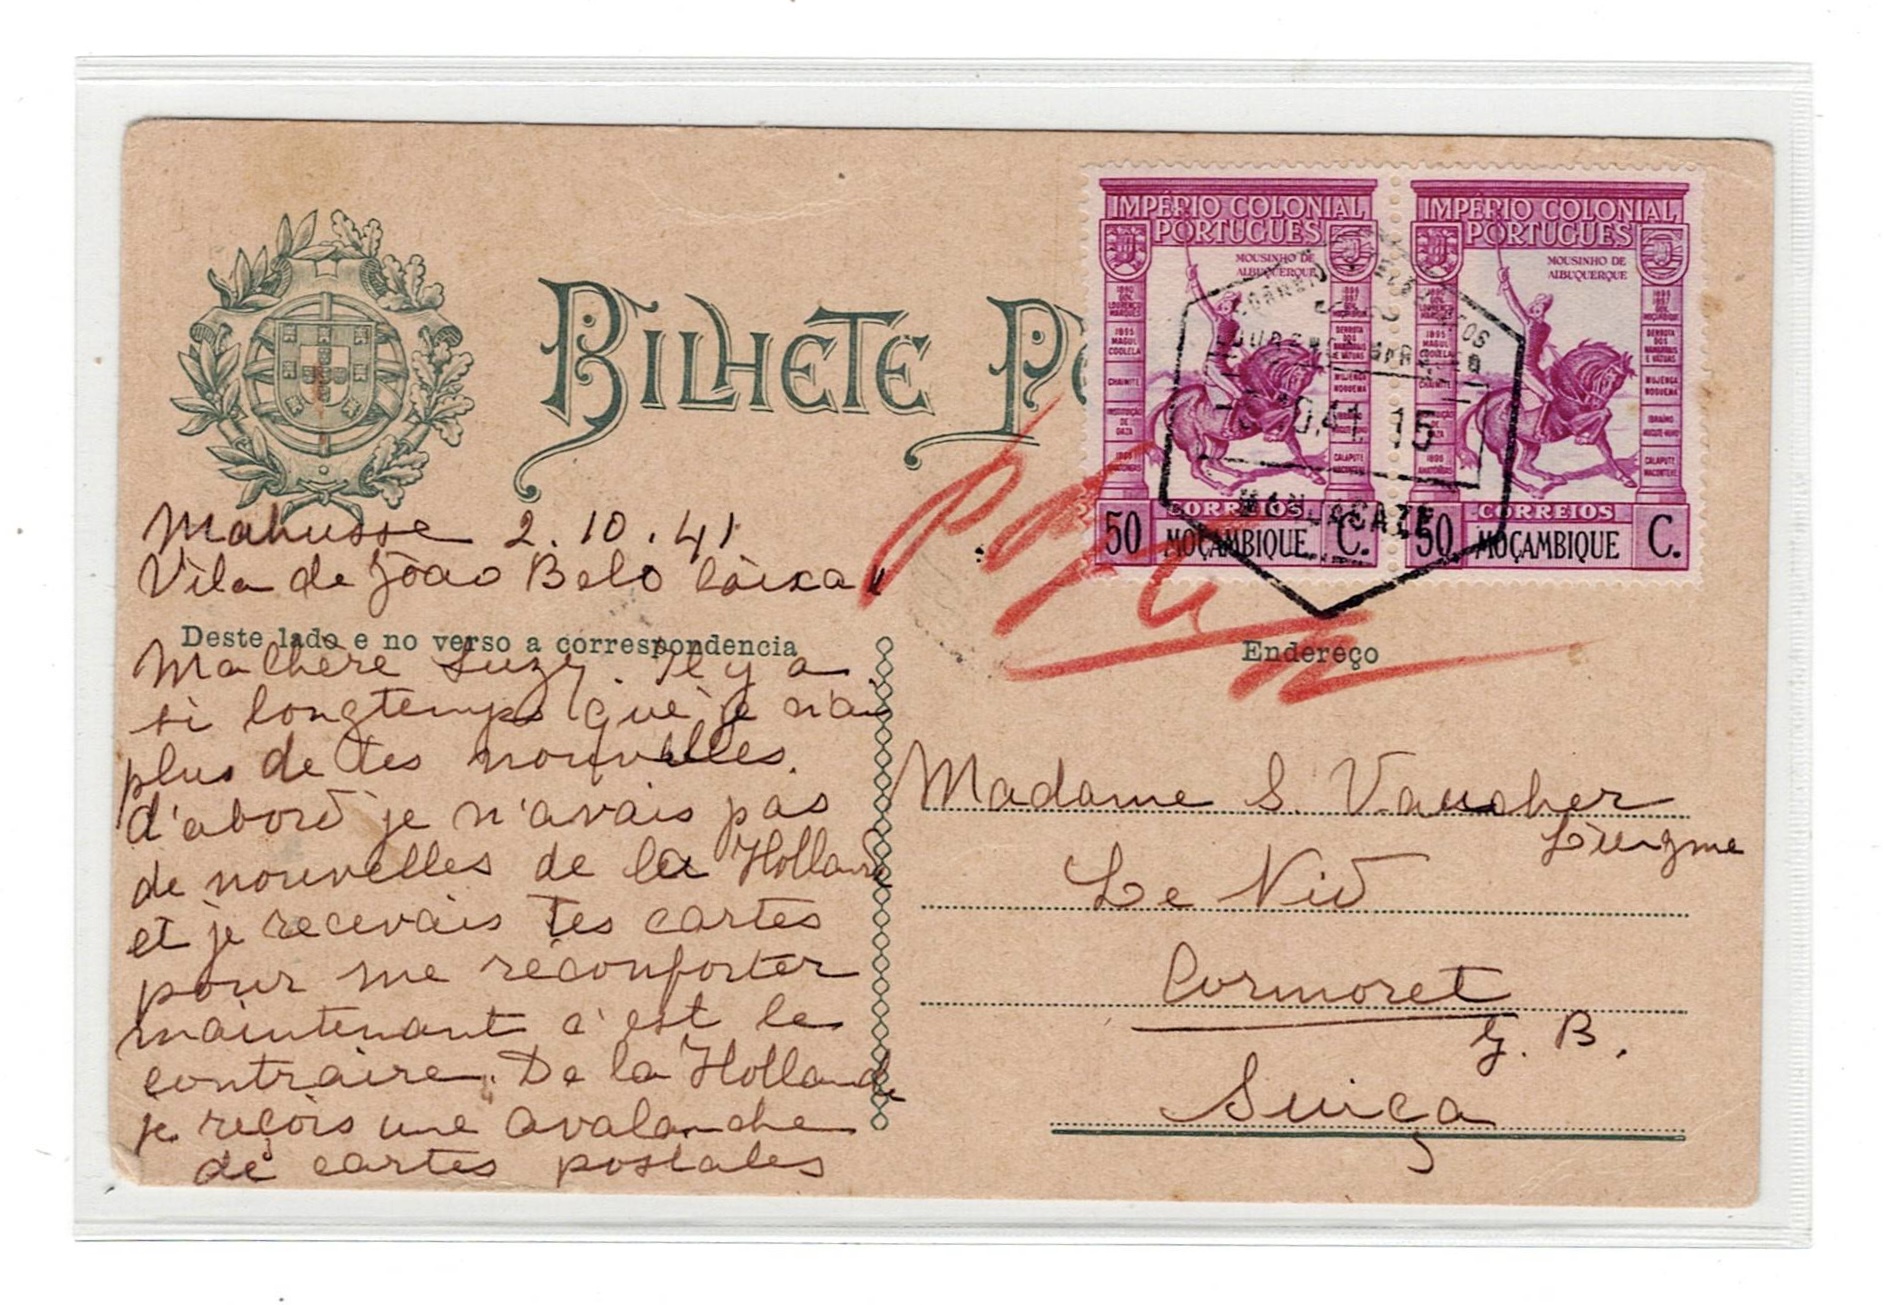 BILHETE PO
IMPÉRIO COLONIAL
PORTUGUÊS
MOUSINHO DE
ALBUQUERQUE
50 CORREIOS C.
MOÇAMBIQUE
IMPÉRIO COLONIAL
PORTUGUÊS
MOUSINHO DE
ALBUQUERQUE
50 CORREIOS C.
MOÇAMBIQUE
10.41 15
MANJACAZE
Mahusse 2.10.41
Vila de João Belo Caixa
Deste lado e no verso a correspondencia
Ma chère Suzy. Il y a
si longtemps que je n'ai
plus de tes nouvelles.
d'abord je n'avais pas
de nouvelles de la Hollande
et je recevais tes cartes
pour me réconforter
maintenant c'est le
contraire. De la Hollande
je reçois une avalanche
de cartes postales
Endereço
Madame S. Vaucher
Le Nid
Cormoret
J. B.
Suiça